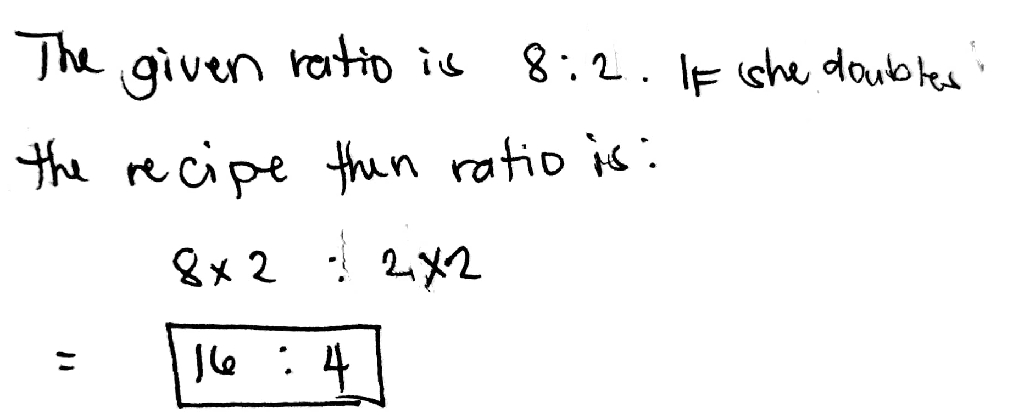 The given ratio is 8:2. IF she doubles
the recipe then ratio is:
8x2 : 2x2
= 16 : 4